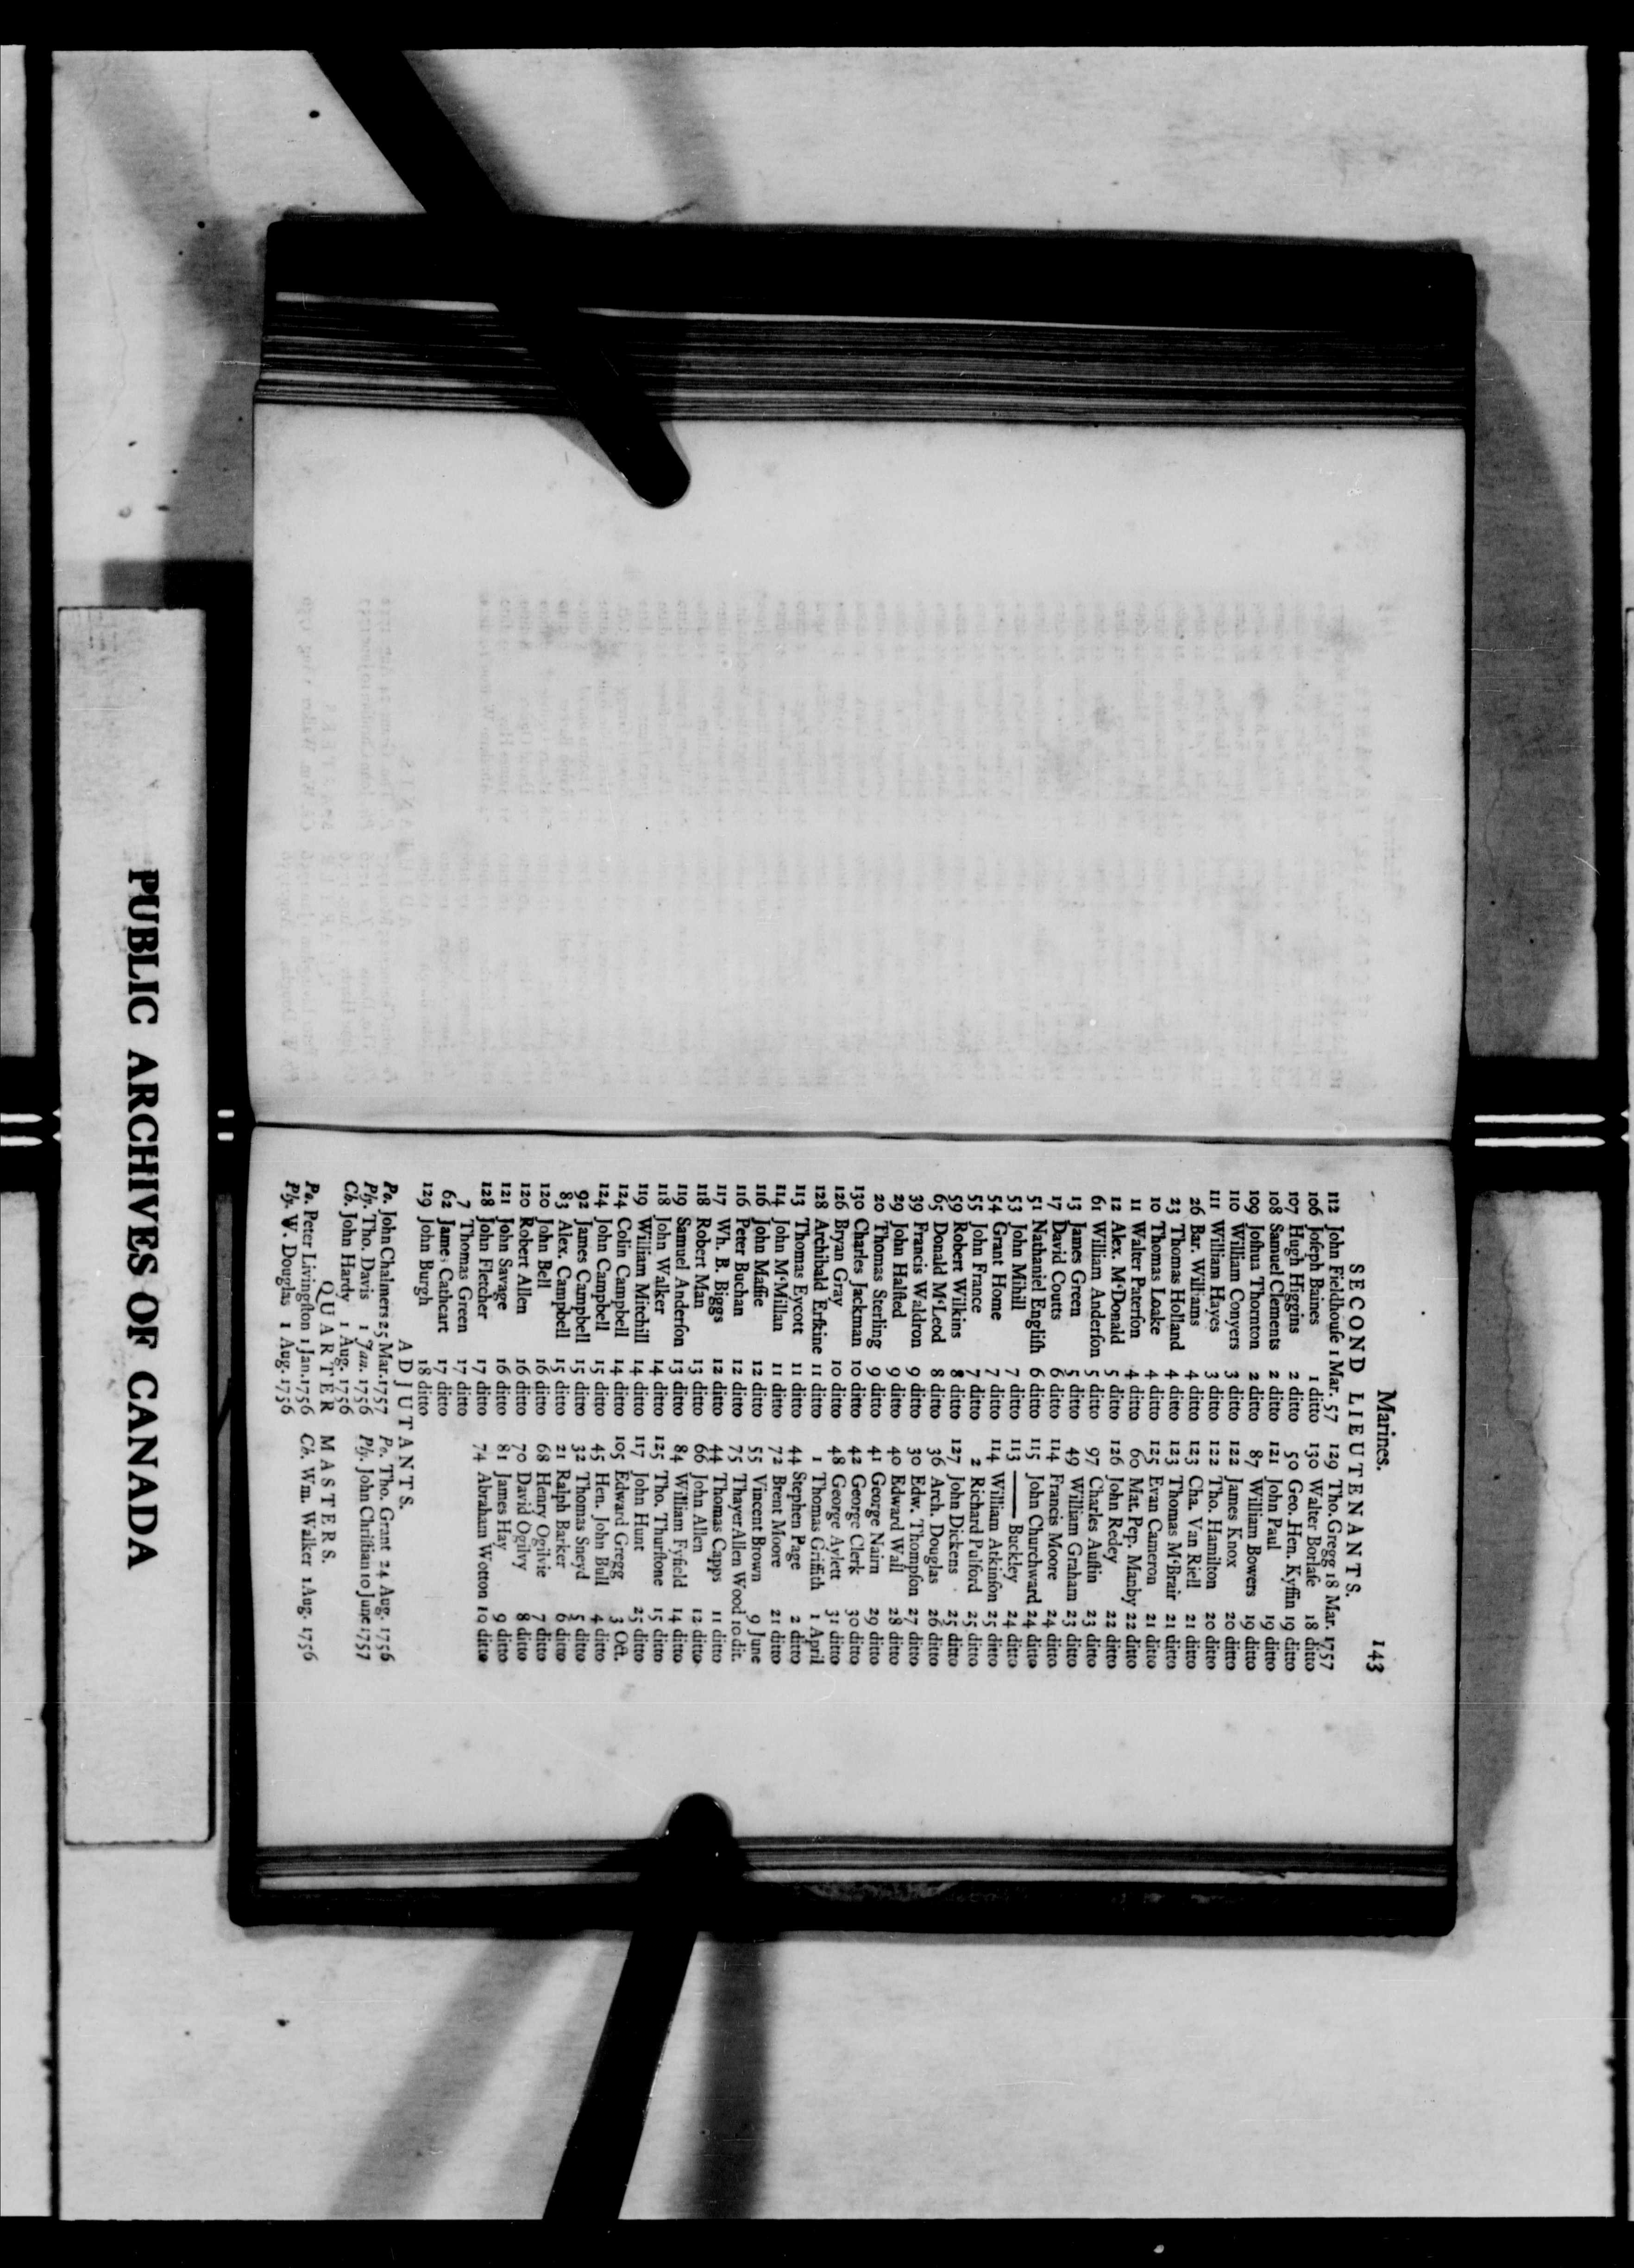 Marines. 143
SECOND LIEUTENANTS.
112 John Fieldhouſe 1 Mar. 57
106 Joſeph Baines 1 ditto
107 Hugh Higgins 2 ditto
108 Samuel Clements 2 ditto
109 Joſhua Thornton 2 ditto
110 William Conyers 3 ditto
111 William Hayes 3 ditto
26 Bar. Williams 4 ditto
23 Thomas Holland 4 ditto
10 Thomas Loake 4 ditto
11 Walter Paterſon 4 ditto
12 Alex. M‘Donald 5 ditto
61 William Anderſon 5 ditto
13 James Green 5 ditto
17 David Coutts 6 ditto
51 Nathaniel Engliſh 6 ditto
53 John Mihill 7 ditto
54 Grant Home 7 ditto
55 John France 7 ditto
59 Robert Wilkins 8 ditto
65 Donald M‘Leod 8 ditto
39 Francis Waldron 9 ditto
29 John Halſted 9 ditto
20 Thomas Sterling 9 ditto
130 Charles Jackman 10 ditto
126 Bryan Gray 10 ditto
128 Archibald Erſkine 11 ditto
113 Thomas Eycott 11 ditto
114 John M‘Millan 11 ditto
116 John Maſſie 12 ditto
116 Peter Buchan 12 ditto
117 Wh. B. Biggs 12 ditto
118 Robert Man 13 ditto
119 Samuel Anderſon 13 ditto
118 John Walker 14 ditto
119 William Mitchill 14 ditto
124 Colin Campbell 14 ditto
124 John Campbell 15 ditto
92 James Campbell 15 ditto
83 Alex. Campbell 15 ditto
120 John Bell 16 ditto
120 Robert Allen 16 ditto
121 John Savage 16 ditto
128 John Fletcher 17 ditto
7 Thomas Green 17 ditto
62 James Cathcart 17 ditto
129 John Burgh 18 ditto
129 Tho. Gregg 18 Mar. 1757
130 Walter Borlaſe 18 ditto
50 Geo. Hen. Kyffin 19 ditto
121 John Paul 19 ditto
87 William Bowers 19 ditto
122 James Knox 20 ditto
122 Tho. Hamilton 20 ditto
123 Cha. Van Riell 21 ditto
123 Thomas M‘Brair 21 ditto
125 Evan Cameron 21 ditto
60 Mat. Pep. Manby 22 ditto
126 John Redey 22 ditto
97 Charles Auſtin 23 ditto
49 William Graham 23 ditto
114 Francis Moore 24 ditto
115 John Churchward 24 ditto
113 —— Buckley 24 ditto
114 William Atkinſon 25 ditto
2 Richard Pulford 25 ditto
127 John Dickens 25 ditto
36 Arch. Douglas 26 ditto
30 Edw. Thompſon 27 ditto
40 Edward Wall 28 ditto
41 George Nairn 29 ditto
42 George Clerk 30 ditto
48 George Aylett 31 ditto
1 Thomas Griffith 1 April
44 Stephen Page 2 ditto
72 Brent Moore 21 ditto
55 Vincent Brown 9 June
75 Thayer Allen Wood 10 dit.
44 Thomas Capps 11 ditto
66 John Allen 12 ditto
84 William Fyfield 14 ditto
125 Tho. Thurſtone 15 ditto
117 John Hunt 25 ditto
105 Edward Gregg 3 Oct.
45 Hen. John Bull 4 ditto
32 Thomas Sneyd 5 ditto
21 Ralph Barker 6 ditto
68 Henry Ogilvie 7 ditto
70 David Ogilvy 8 ditto
81 James Hay 9 ditto
74 Abraham Wotton 10 ditto
ADJUTANTS.
Po. John Chalmers 25 Mar. 1757
Ply. Tho. Davis 1 Jan. 1756
Ch. John Hardy 1 Aug. 1756
Po. Tho. Grant 24 Aug. 1756
Ply. John Chriſtian 10 June 1757
QUARTER MASTERS.
Po. Peter Livingſton 1 Jan. 1756
Ply. W. Douglas 1 Aug. 1756
Ch. Wm. Walker 1 Aug. 1756
PUBLIC ARCHIVES OF CANADA